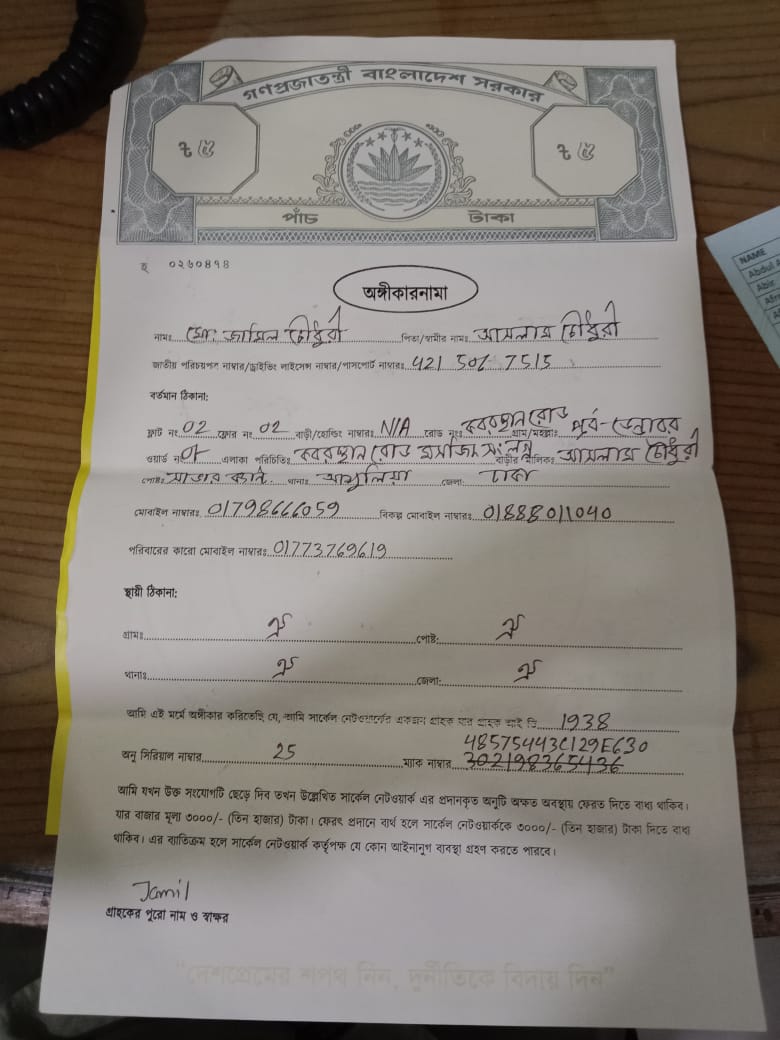 গণপ্রজাতন্ত্রী বাংলাদেশ সরকার
৳ ৫ ৳ ৫
পাঁচ টাকা
হ ০২৬০৪৭৪
অঙ্গীকারনামা
নামঃ মো: জামিল চৌধুরী পিতা/স্বামীর নামঃ আসলাম চৌধুরী
জাতীয় পরিচয়পত্র নাম্বার/ড্রাইভিং লাইসেন্স নাম্বার/পাসপোর্ট নাম্বারঃ 421 506 7515
বর্তমান ঠিকানা:
ফ্লাট নং 02 ফ্লোর নং 02 বাড়ী/হোল্ডিং নাম্বারঃ N/A রোড নংঃ কবরস্থান রোড গ্রাম/মহল্লাঃ পূর্ব-ডেন্ডাবর
ওয়ার্ড নং 01 এলাকা পরিচিতিঃ কবরস্থান রোড মসজিদ সংলগ্ন বাড়ীর মালিকঃ আসলাম চৌধুরী
পোষ্টঃ সাভার ক্যান্ট. থানাঃ আশুলিয়া জেলাঃ ঢাকা
মোবাইল নাম্বারঃ 01798666059 বিকল্প মোবাইল নাম্বারঃ 01888011040
পরিবারের কারো মোবাইল নাম্বারঃ 01773769619
স্থায়ী ঠিকানা:
গ্রামঃ ঐ পোষ্ট: ঐ
থানাঃ ঐ জেলা: ঐ
আমি এই মর্মে অঙ্গীকার করিতেছি যে, আমি সার্কেল নেটওয়ার্কের একজন গ্রাহক যার গ্রাহক আই ডি 1938
48575443C129E630
অনু সিরিয়াল নাম্বার 25 ম্যাক নাম্বার 302198365436
আমি যখন উক্ত সংযোগটি ছেড়ে দিব তখন উল্লেখিত সার্কেল নেটওয়ার্ক এর প্রদানকৃত অনুটি অক্ষত অবস্থায় ফেরত দিতে বাধ্য থাকিব।
যার বাজার মূল্য ৩০০০/- (তিন হাজার) টাকা। ফেরৎ প্রদানে ব্যর্থ হলে সার্কেল নেটওয়ার্ককে ৩০০০/- (তিন হাজার) টাকা দিতে বাধ্য
থাকিব। এর ব্যতিক্রম হলে সার্কেল নেটওয়ার্ক কর্তৃপক্ষ যে কোন আইনানুগ ব্যবস্থা গ্রহণ করতে পারবে।
Jamil
গ্রাহকের পুরো নাম ও স্বাক্ষর
“দেশপ্রেমের শপথ নিন, দুর্নীতিকে বিদায় দিন”
NAME
Abdul
Abir